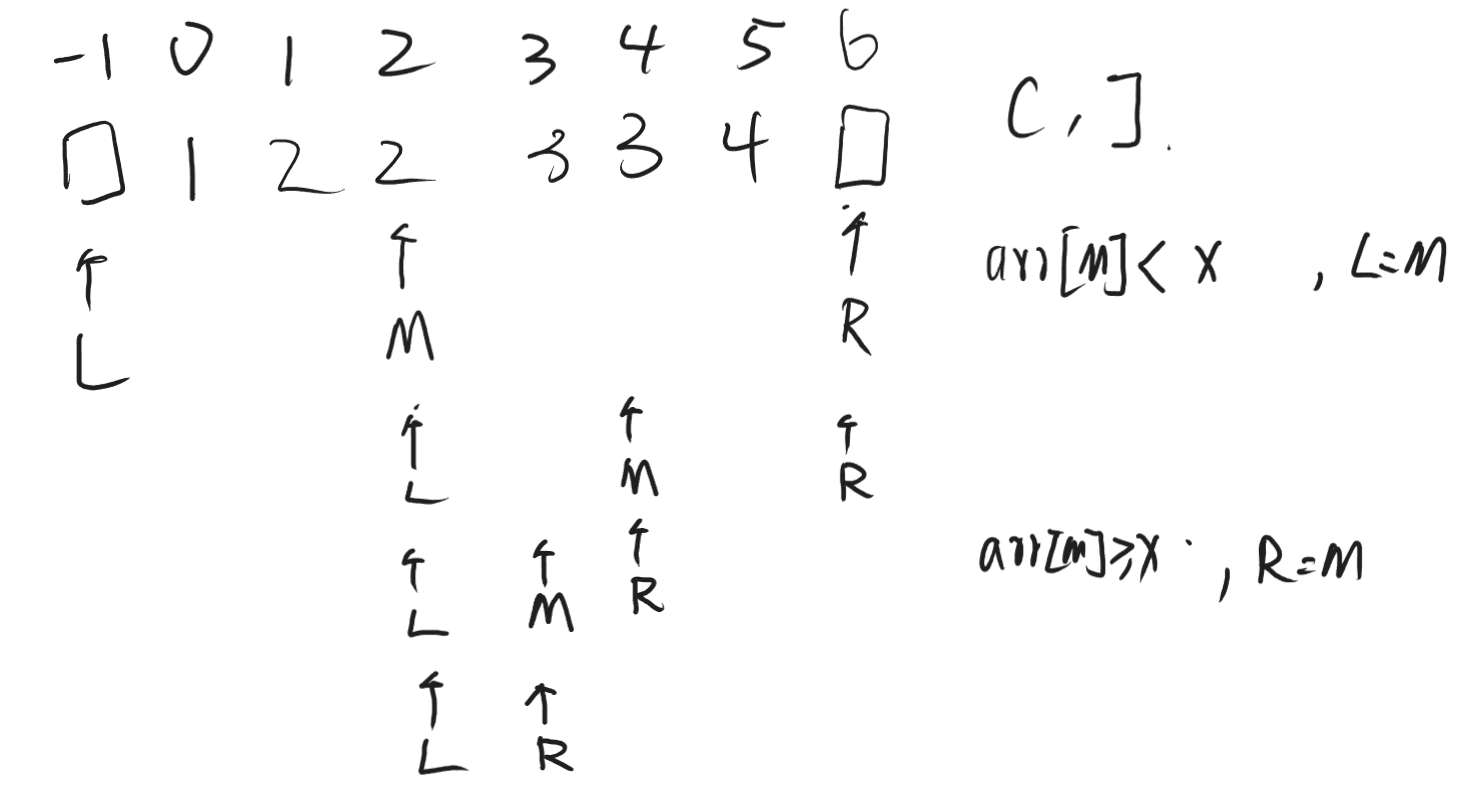 -1 0 1 2 3 4 5 6
□ 1 2 2 3 3 4 □
( , ] .
↑ ↑ ↑
L M R
arr[M] < x , L=M
↑ ↑ ↑
L M R
↑ ↑ ↑
L M R
arr[m] ≥ x , R=M
↑ ↑
L R